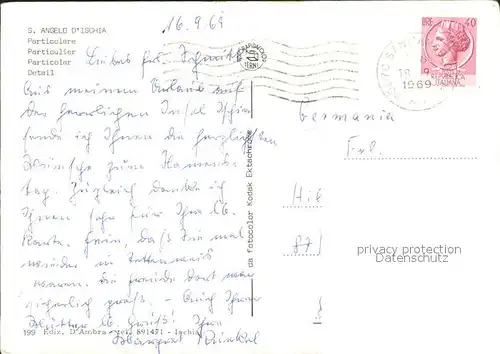 16.9.69
S. ANGELO D'ISCHIA
Particolare
Particulier
Particolar
Detail
Liebes Frl. Schmitt
Aus meinem Urlaub auf
der herrlichen Insel Ischia
sende ich Ihnen die herzlichsten
Wünsche zum Namens-
tag. Zugleich danke ich
Ihnen sehr für Ihre lb.
Karte. Fein, daß Sie mal
wieder in
waren. Die Freude dort war
sicherlich groß. - Auch Ihrer
Mutter lb. Grüße! Ihre
Margret
199 Ediz. D'Ambra - tel. 891471 - Ischia
da fotocolor Kodak Ektachrome
LIRE 40
REPUBBLICA
ITALIANA
1969
Germania
Frl.
privacy protection
Datenschutz
87